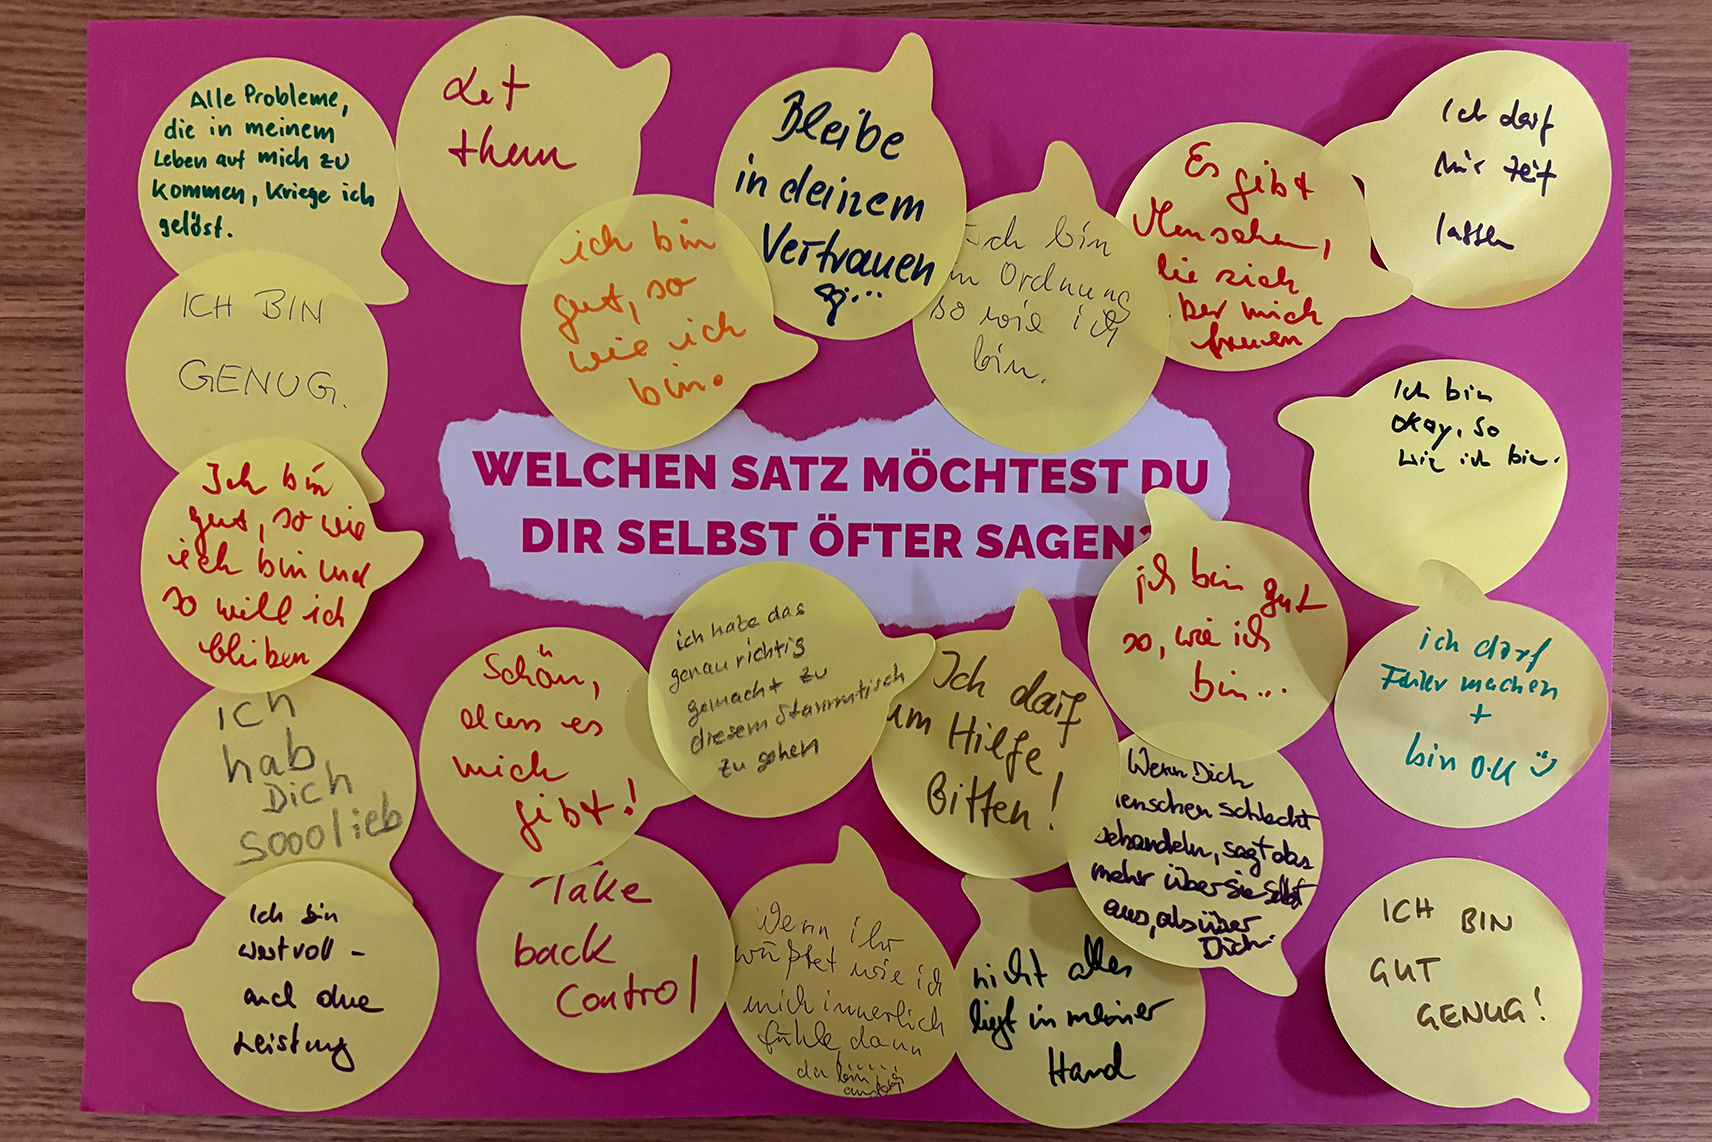 Alle Probleme,
die in meinem
Leben auf mich zu
kommen, kriege ich
gelöst.
Let
them
Bleibe
in deinem
Vertrauen
Es gibt
Menschen,
die sich
über mich
freuen
Ich darf
mir Zeit
lassen
ICH BIN
GENUG.
ich bin
gut, so
wie ich
bin.
Ich bin
in Ordnung
so wie ich
bin.
Ich bin
okay, so
wie ich bin.
WELCHEN SATZ MÖCHTEST DU
DIR SELBST ÖFTER SAGEN?
Ich bin
gut, so wie
ich bin und
so will ich
bleiben
ich habe das
genau richtig
gemacht zu
diesem Stammtisch
zu gehen
ich bin gut
so, wie ich
bin...
ich darf
Fehler machen
+
bin O.K
Schön,
dass es
mich
gibt!
Ich darf
um Hilfe
Bitten!
ich
hab
Dich
sooolieb
Wenn Dich
Menschen schlecht
behandeln, sagt das
mehr über sie selbst
aus, als über
Dich.
Ich bin
wertvoll -
auch ohne
Leistung
Take
back
Control
Wenn ihr
wüßtet wie ich
mich innerlich
fühle dann
da bin
nicht alles
liegt in meiner
Hand
ICH BIN
GUT
GENUG!